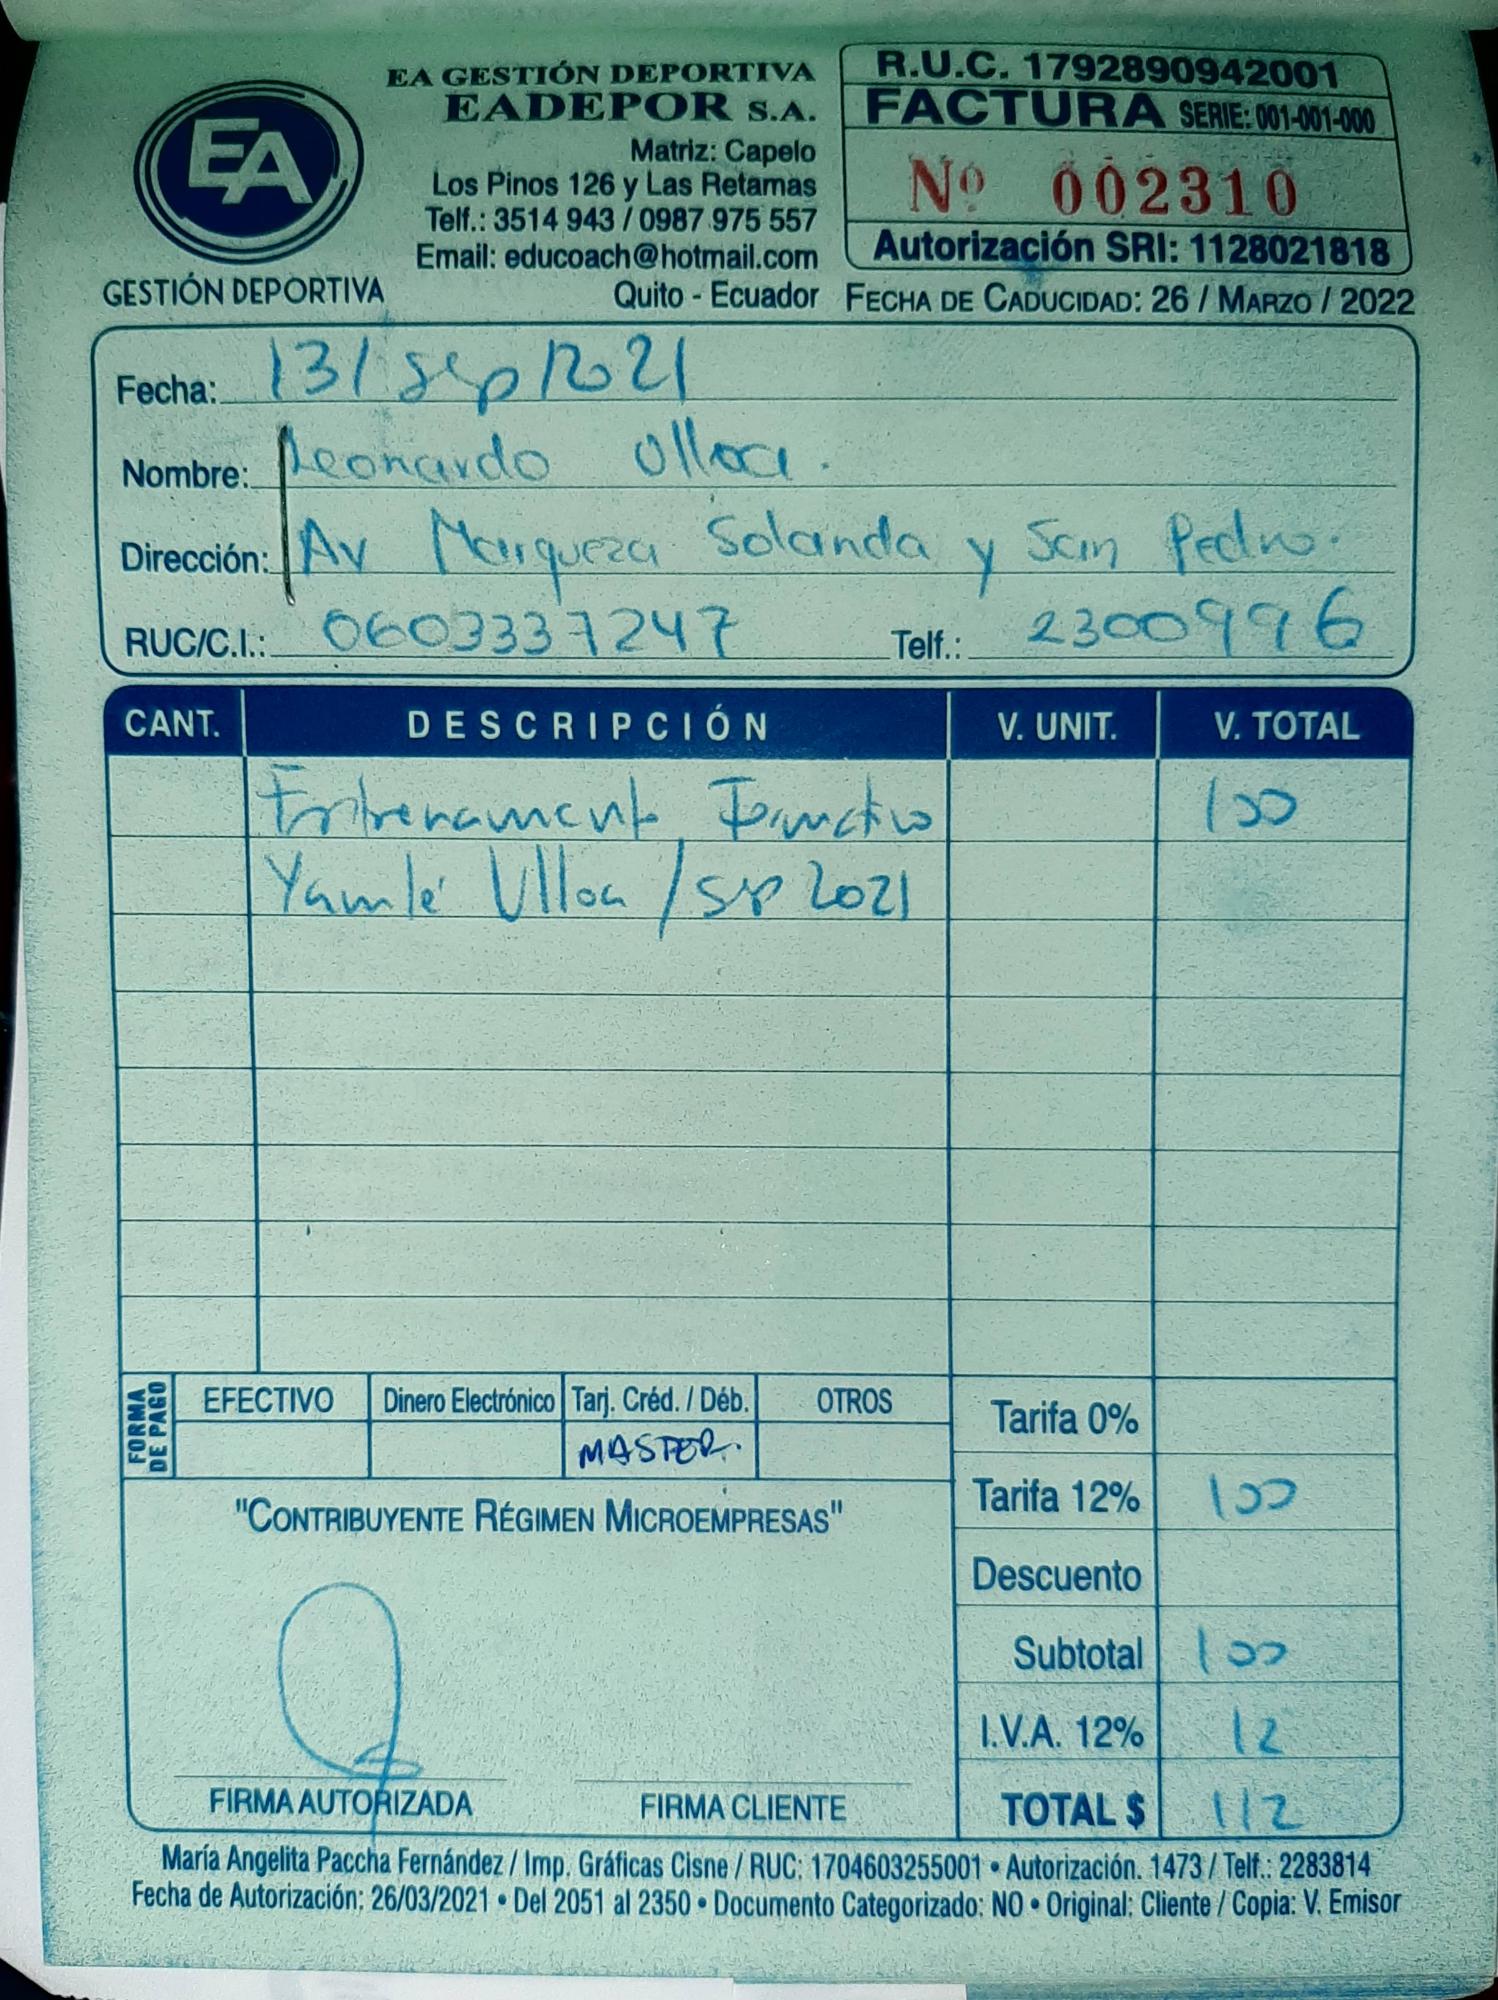 EA
GESTIÓN DEPORTIVA
EA GESTIÓN DEPORTIVA
EADEPOR S.A.
Matriz: Capelo
Los Pinos 126 y Las Retamas
Telf.: 3514 943 / 0987 975 557
Email: educoach@hotmail.com
Quito - Ecuador
R.U.C. 1792890942001
FACTURA SERIE: 001-001-000
Nº 002310
Autorización SRI: 1128021818
FECHA DE CADUCIDAD: 26 / MARZO / 2022
Fecha: 13/sep/2021
Nombre: Leonardo Ulloa.
Dirección: Av Marqueza Solanda y San Pedro.
RUC/C.I.: 0603337247 Telf.: 2300996
CANT. DESCRIPCIÓN V. UNIT. V. TOTAL
Entrenamento 100
Ulloa / sep 2021
FORMA DE PAGO EFECTIVO Dinero Electrónico Tarj. Créd. / Déb. OTROS
MASTER.
Tarifa 0%
Tarifa 12% 100
Descuento
Subtotal 100
I.V.A. 12% 12
TOTAL $ 112
"CONTRIBUYENTE RÉGIMEN MICROEMPRESAS"
FIRMA AUTORIZADA FIRMA CLIENTE
María Angelita Paccha Fernández / Imp. Gráficas Cisne / RUC: 1704603255001 • Autorización. 1473 / Telf.: 2283814
Fecha de Autorización: 26/03/2021 • Del 2051 al 2350 • Documento Categorizado: NO • Original: Cliente / Copia: V. Emisor